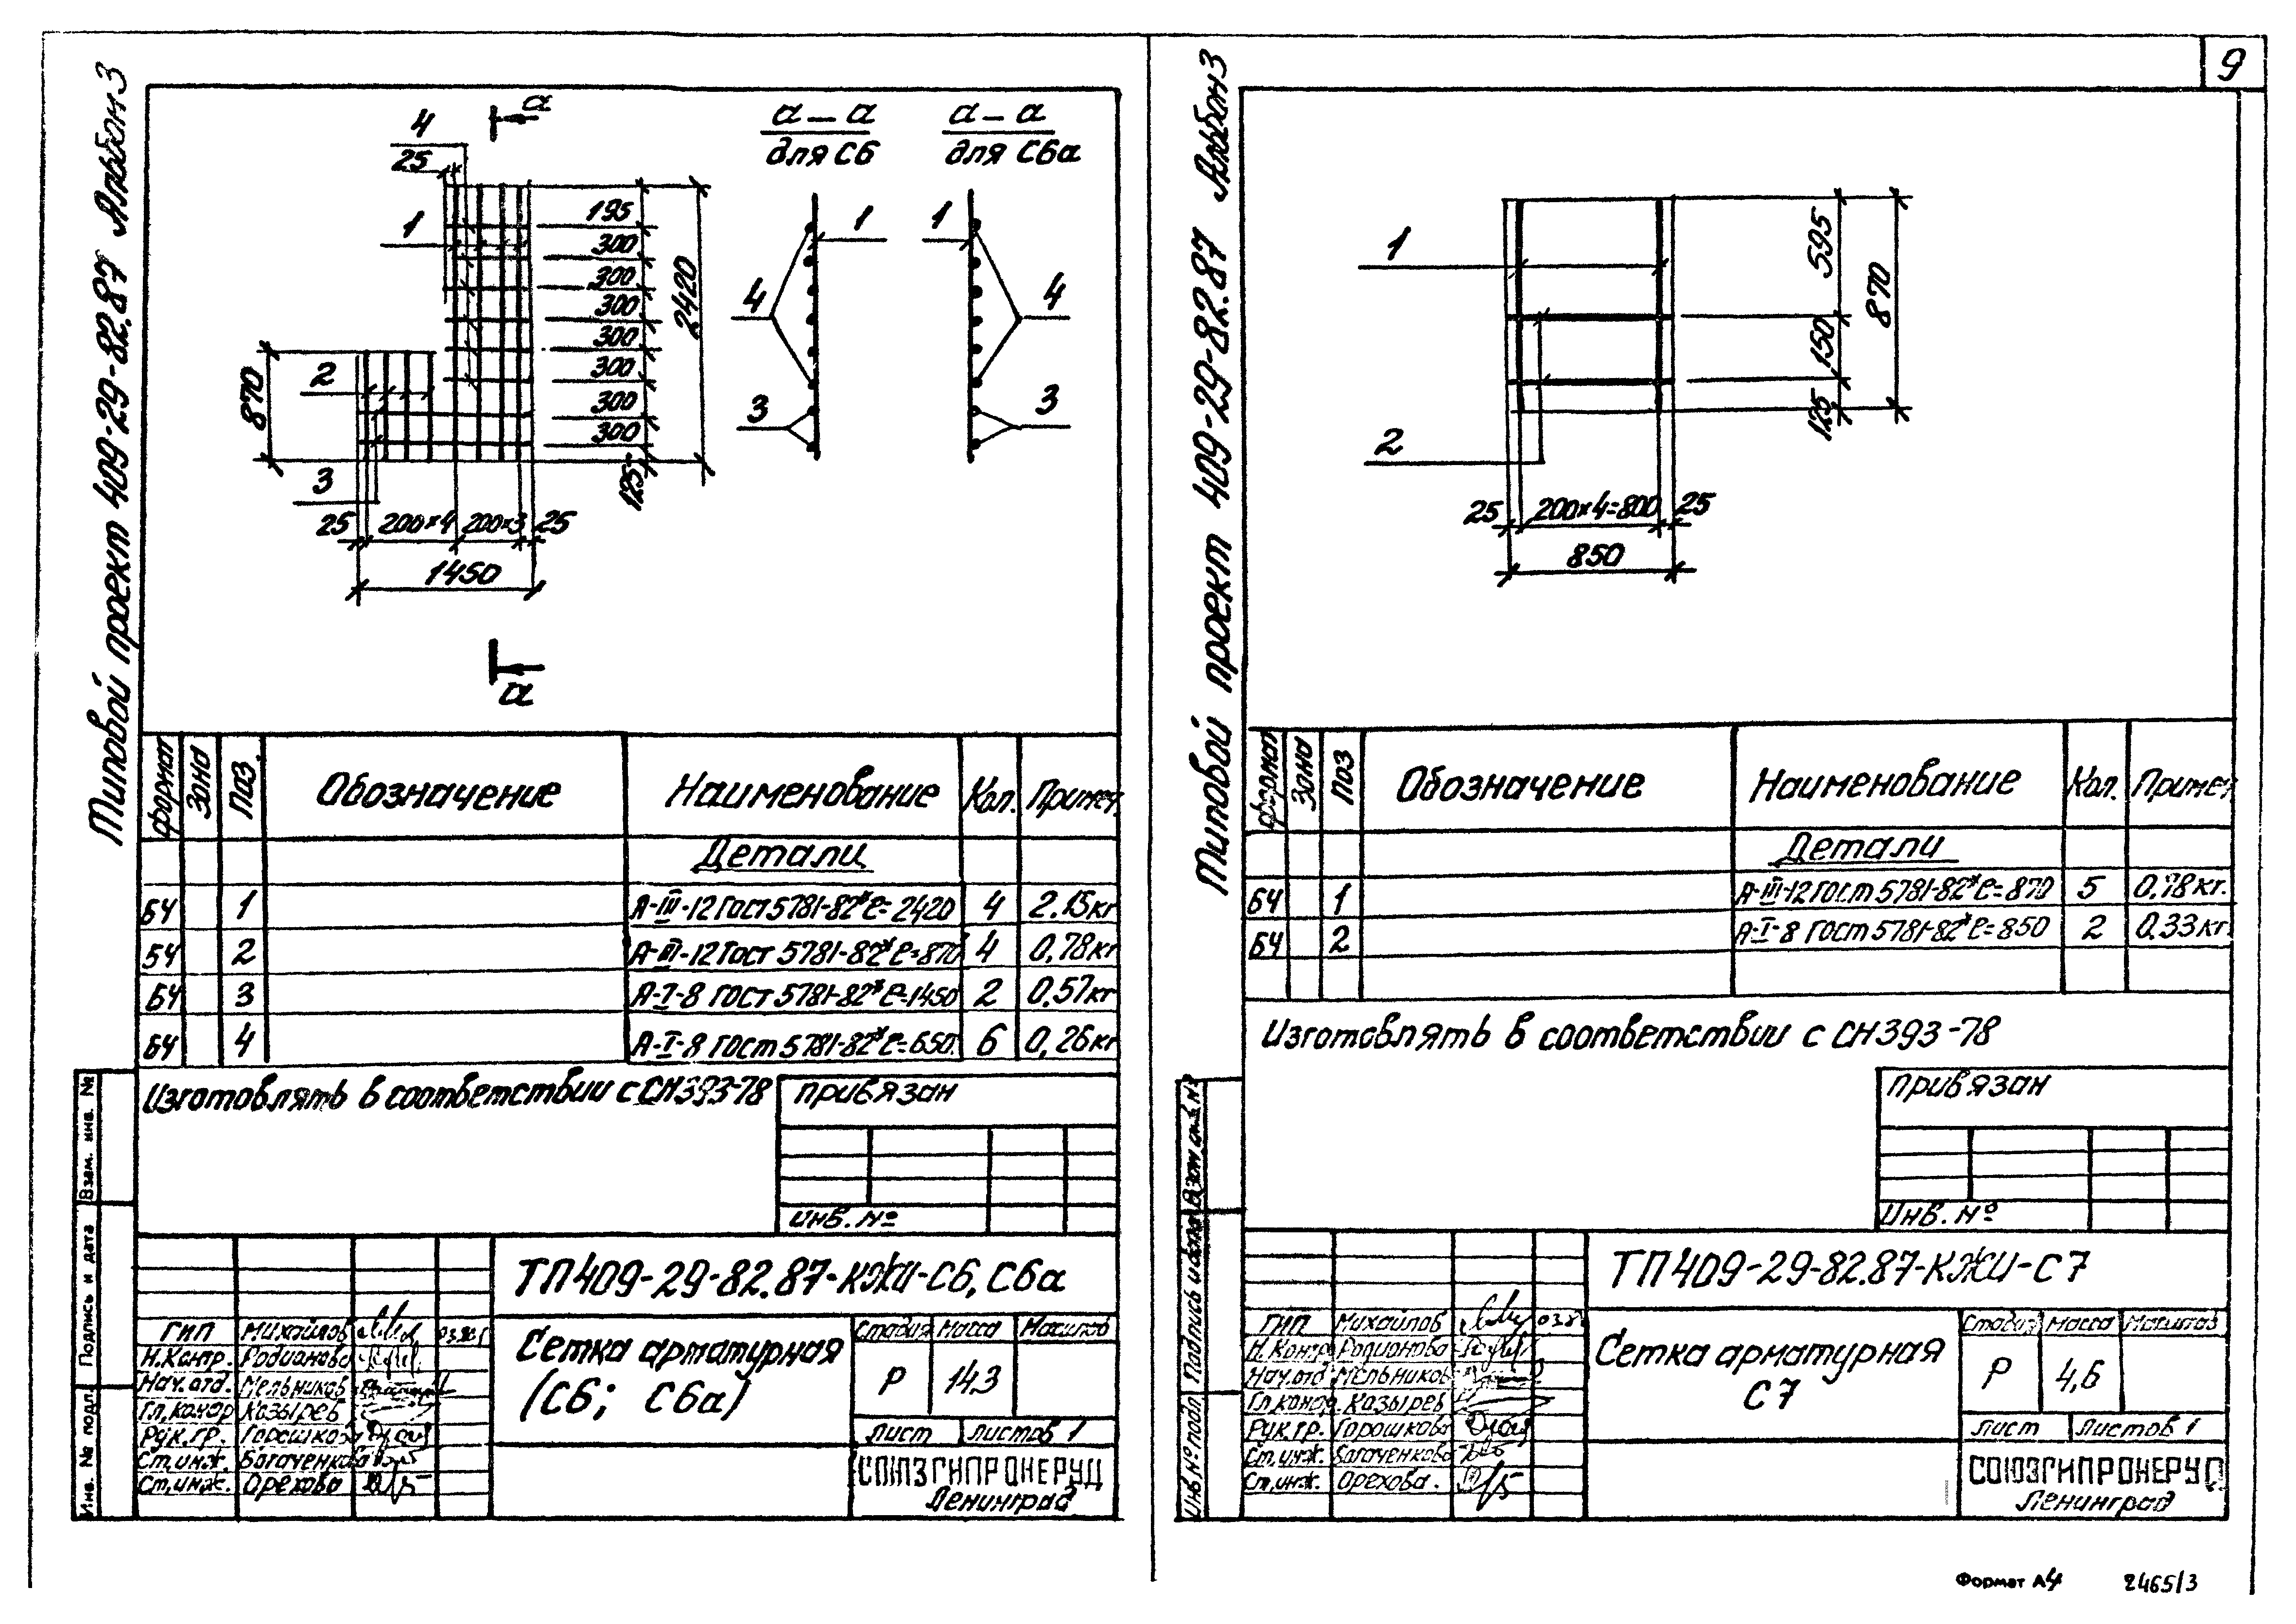 9
Типовой проект 409-29-82.87 Альбом 3
а
4
25
1
195
300
300
300
300
300
300
300
125
2420
870
2
3
25 200×4 200×3 25
1450
а
а – а
для С6
1
4
3
а – а
для С6а
1
4
3
Формат Зона Поз. Обозначение Наименование Кол. Примеч.
Детали
БЧ 1 А-III-12 Гост 5781-82* ℓ= 2420 4 2.15кг
БЧ 2 А-III-12 Гост 5781-82* ℓ=870 4 0,78кг
БЧ 3 А-I-8 Гост 5781-82* ℓ=1450 2 0.57кг
БЧ 4 А-I-8 Гост 5781-82* ℓ=650. 6 0,26кг
Изготовлять в соответствии с СН393-78
привязан
инв. №
ТП409-29-82.87-КЖИ-С6, С6а
Сетка арматурная
(С6; С6а)
Стадия Масса Масштаб
Р 14,3
Лист Листов 1
СОЮЗГИПРОНЕРУД
Ленинград
ГИП Михайлов
Н.Контр. Родионова
Нач.отд. Мельников
Гл.констр Казырев
Рук.гр. Горошкова
Ст.инж. Богаченкова
Ст.инж. Орехова
Взам. инв. №
Подпись и дата
Инв. № подл.
Типовой проект 409-29-82.87 Альбом 3
1
2
595
150
125
870
25 200×4=800 25
850
Формат Зона Поз Обозначение Наименование Кол. Примеч
Детали
БЧ 1 А-III-12 Гост 5781-82* ℓ= 870 5 0.78кг.
БЧ 2 А-I-8 Гост 5781-82* ℓ= 850 2 0.33кг.
Изготовлять в соответствии с СН393-78
привязан
Инв. №
ТП409-29-82.87-КЖИ-С7
Сетка арматурная
С7
Стадия Масса Масштаб
Р 4,6
Лист Листов 1
СОЮЗГИПРОНЕРУД
Ленинград
ГИП Михайлов
Н.Контр Родионова
Нач.отд Мельников
Гл.констр. Казырев
Рук.гр. Горошкова
Ст.инж. Богаченкова
Ст.инж. Орехова.
Взам инв №
Подпись и дата
Инв № подл
Формат А4 2465/3